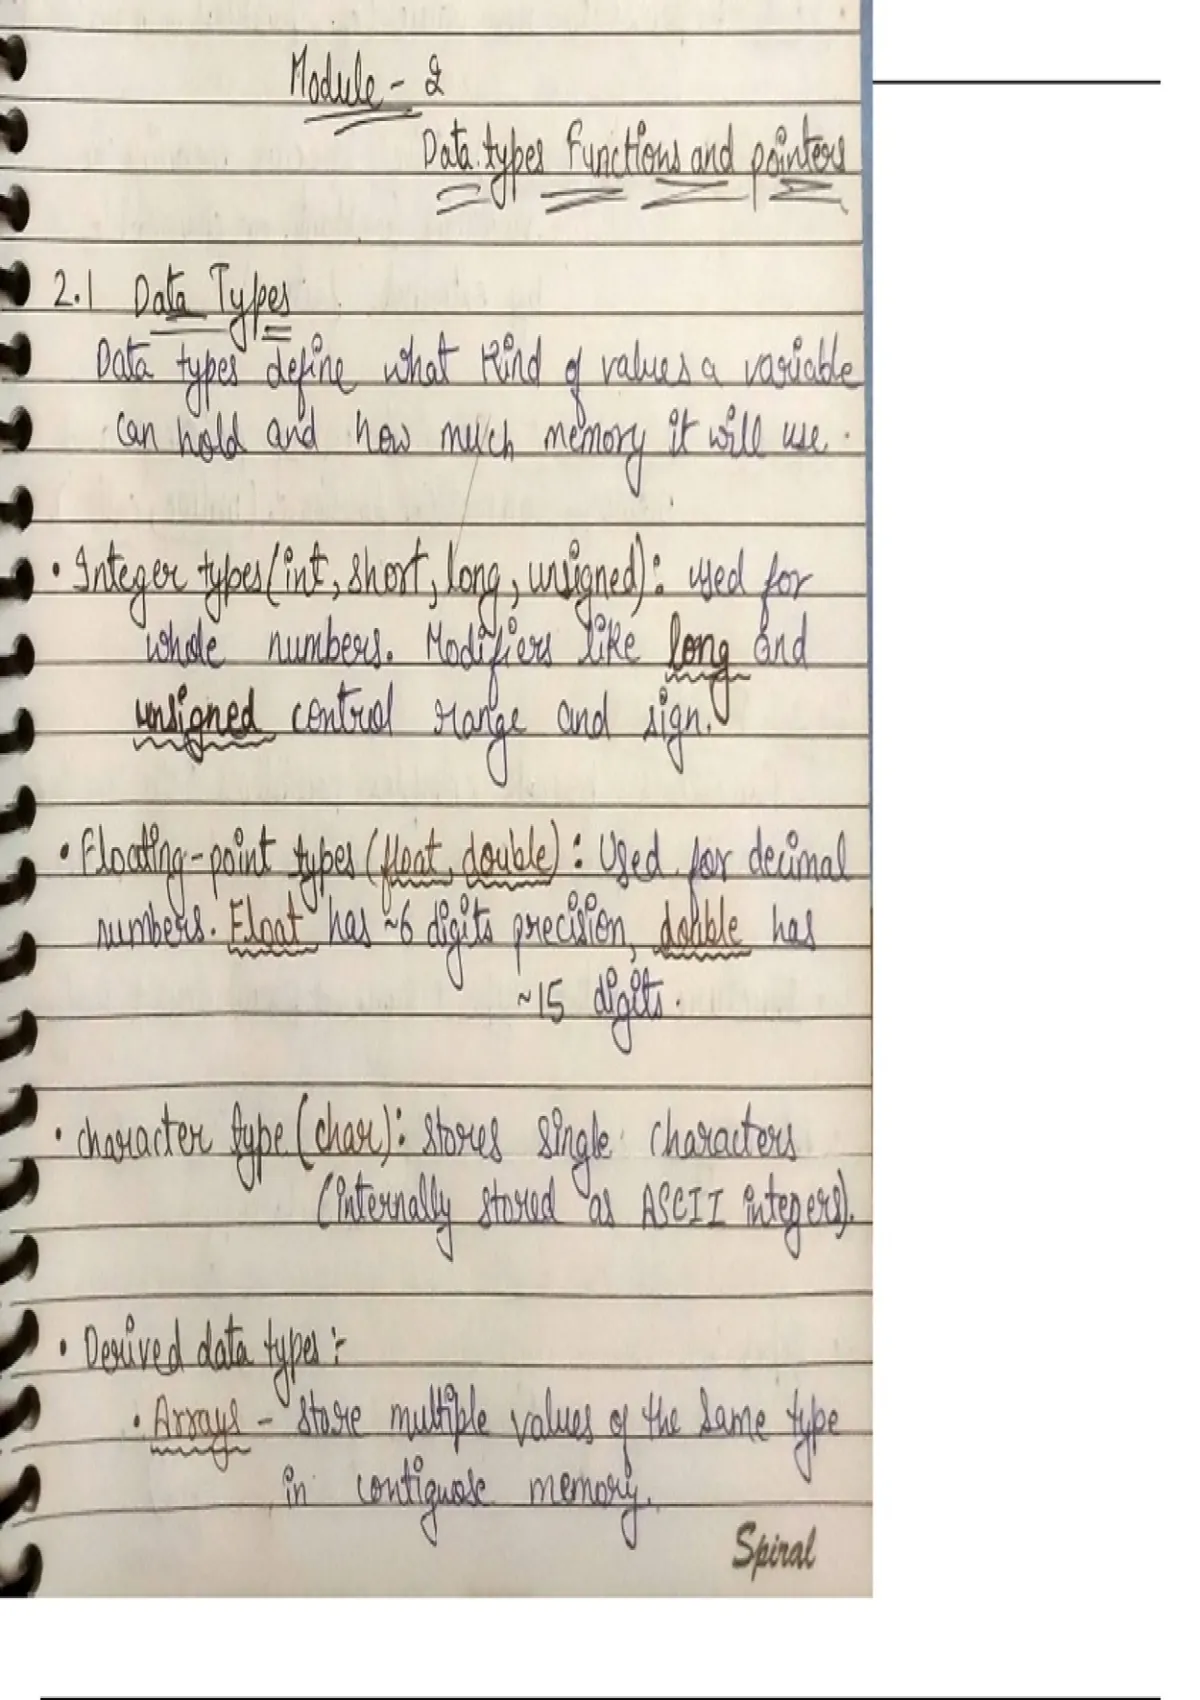 Module - 2
Data types Functions and pointers
2.1 Data Types
Data types define what kind of values a variable
can hold and how much memory it will use.
• Integer types (int, short, long, unsigned): used for
whole numbers. Modifiers like long and
unsigned control range and sign.
• Floating-point types (float, double): Used for decimal
numbers. Float has ~6 digits precision, double has
~15 digits.
• character type (char): stores single characters
(internally stored as ASCII integers).
• Derived data types :-
• Arrays - store multiple values of the same type
in memory.
Spiral